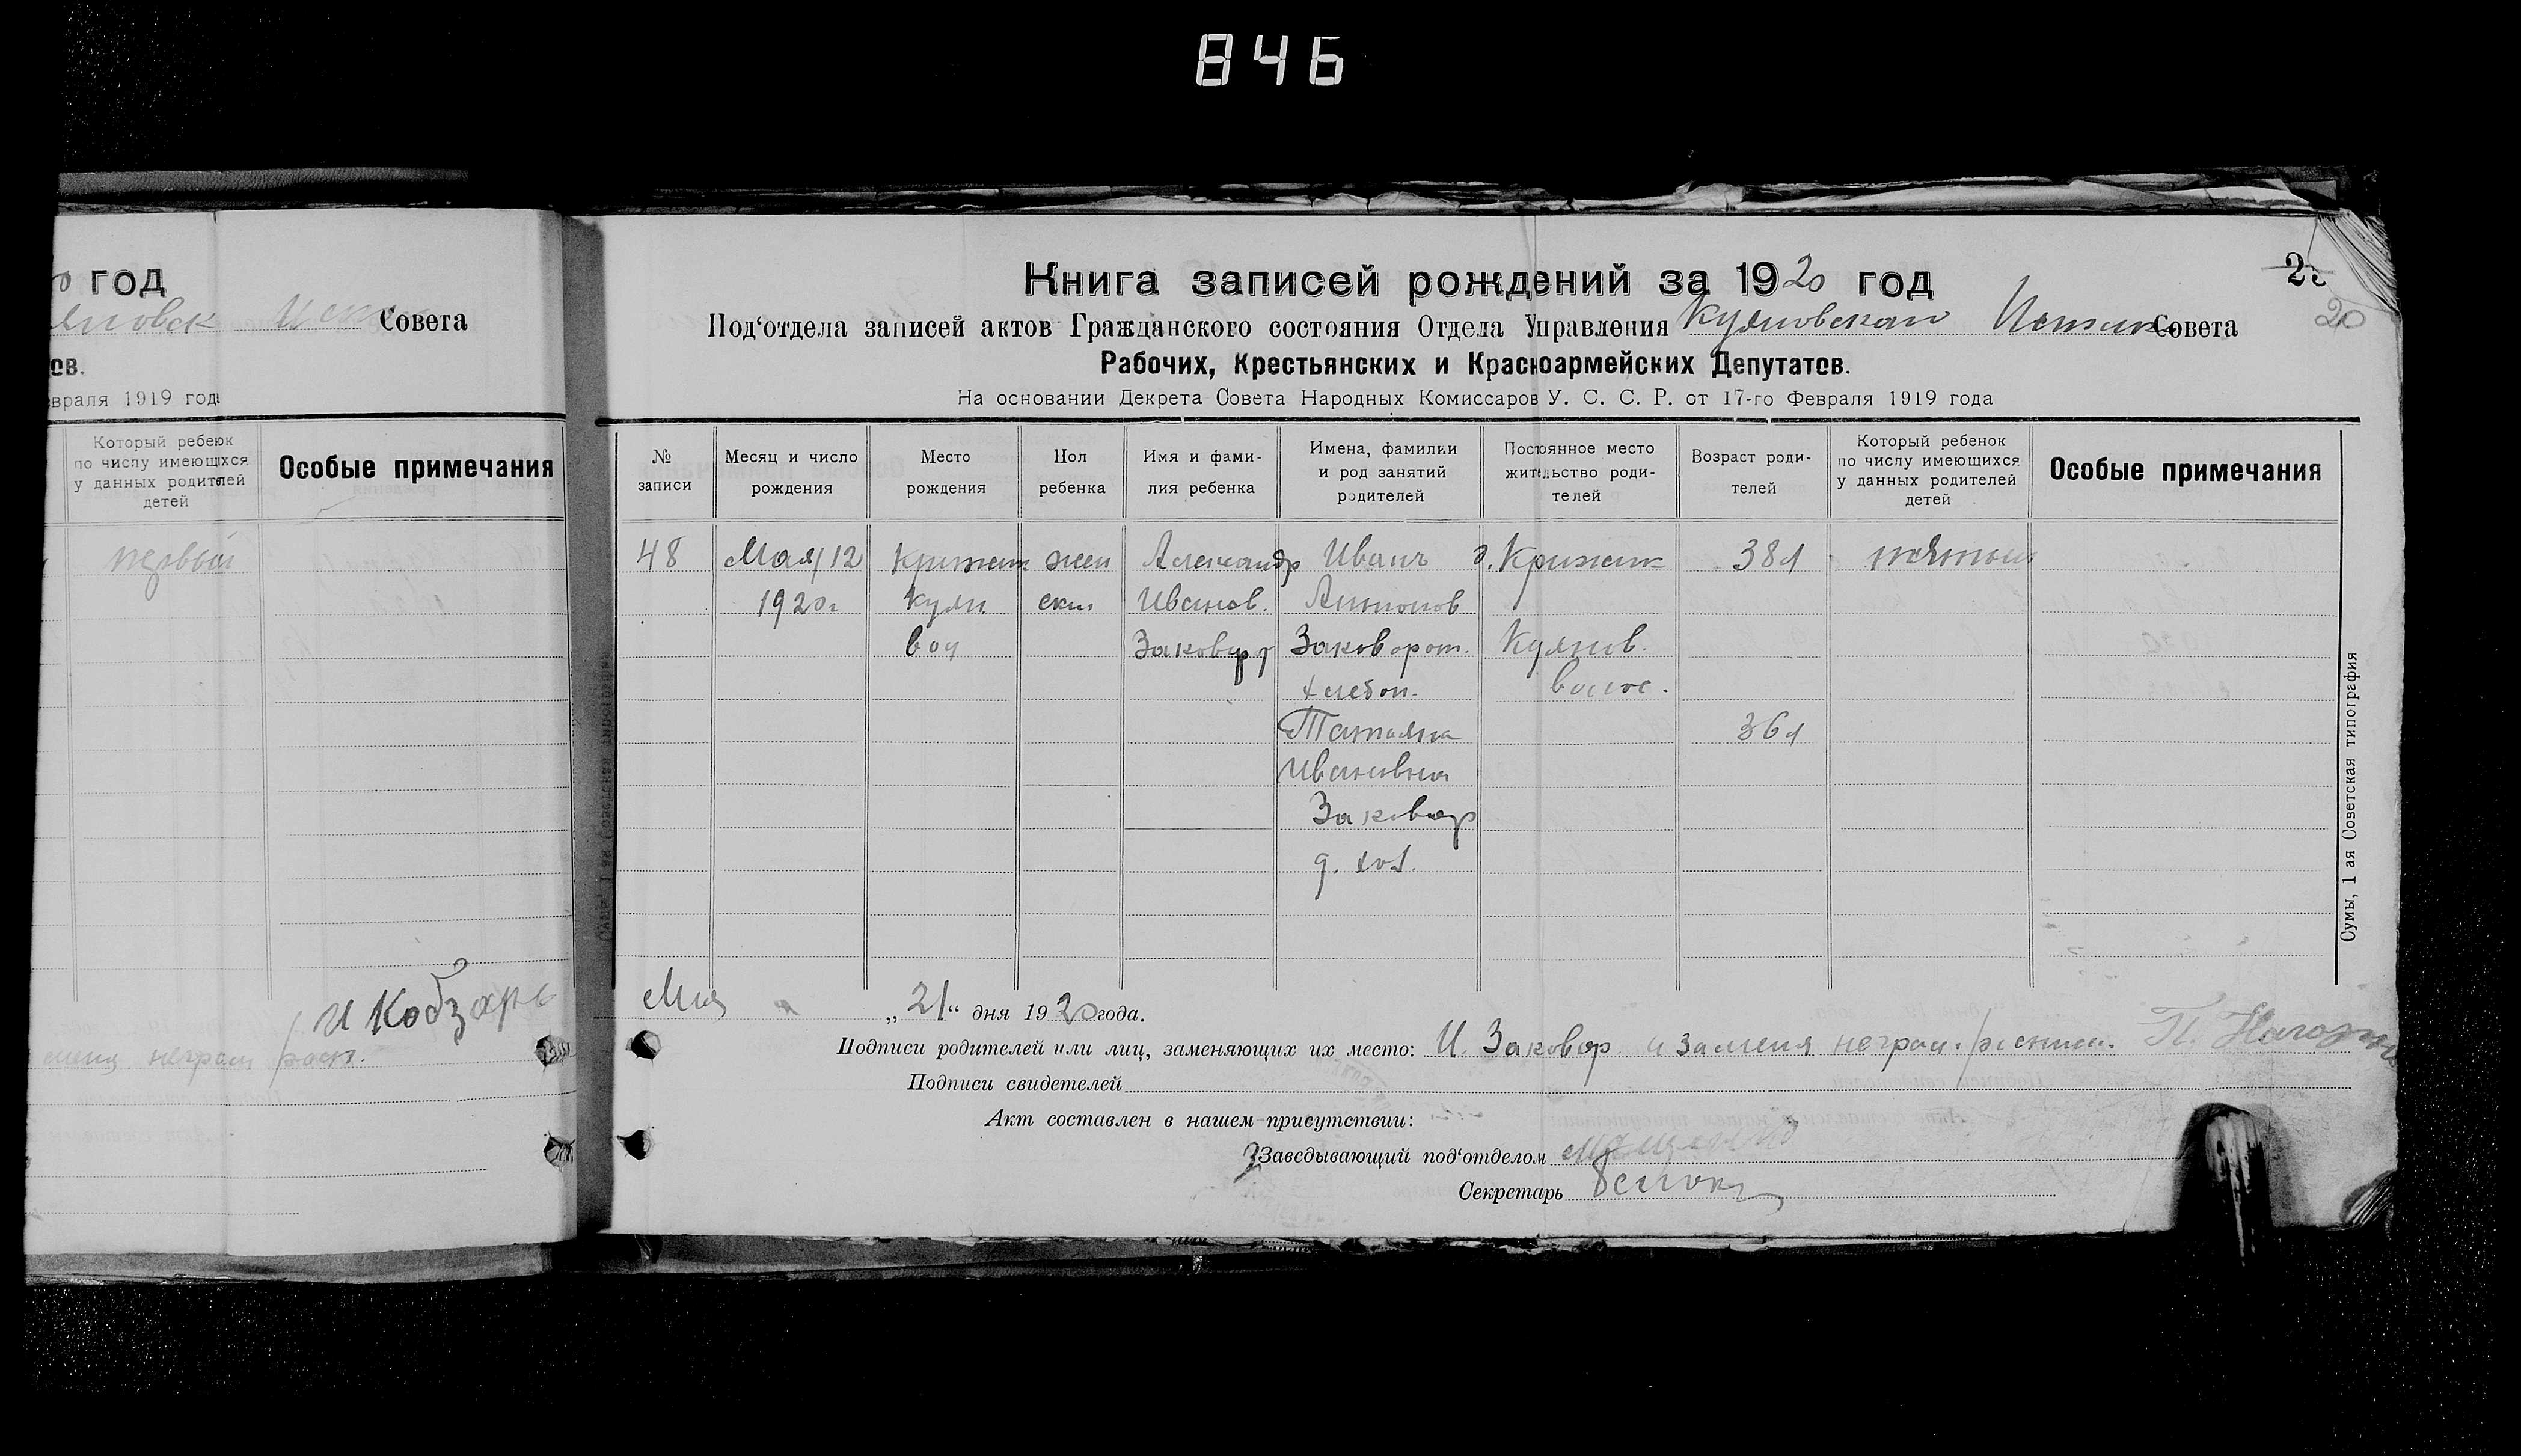 846
год
Совета
ов.
евраля 1919 года
Который ребенок
по числу имеющихся
у данных родителей
детей
Особые примечания
первый
И Кобзарь
неграм расп.
Книга записей рождений за 1920 год
Под'отдела записей актов Гражданского состояния Отдела Управления Куяновская Совета
20
Рабочих, Крестьянских и Красноармейских Депутатов.
На основании Декрета Совета Народных Комиссаров У. С. С. Р. от 17-го Февраля 1919 года
№
записи
Месяц и число
рождения
Место
рождения
Пол
ребенка
Имя и фами-
лия ребенка
Имена, фамилии
и род занятий
родителей
Постоянное место
жительство роди-
телей
Возраст роди-
телей
Который ребенок
по числу имеющихся
у данных родителей
детей
Особые примечания
48
Мая 12
1920г
Крижик
Куян
вол
жен
ски
Александр
Иванов.
Заковорт
Иванъ
Антонов
Заковорот.
хлебоп.
Татьяна
Ивановна
Заковор
д. хоз.
д. Крижик
Куянов.
волос.
38л
36л
пятый
Мая „21“ дня 1920 года.
Подписи родителей или лиц, заменяющих их место: И. Заковор и за меня неграм. распис.
Подписи свидетелей
Акт составлен в нашем присутствии:
Заведывающий под'отделом
Секретарь
Сумы, 1 ая Советская типография